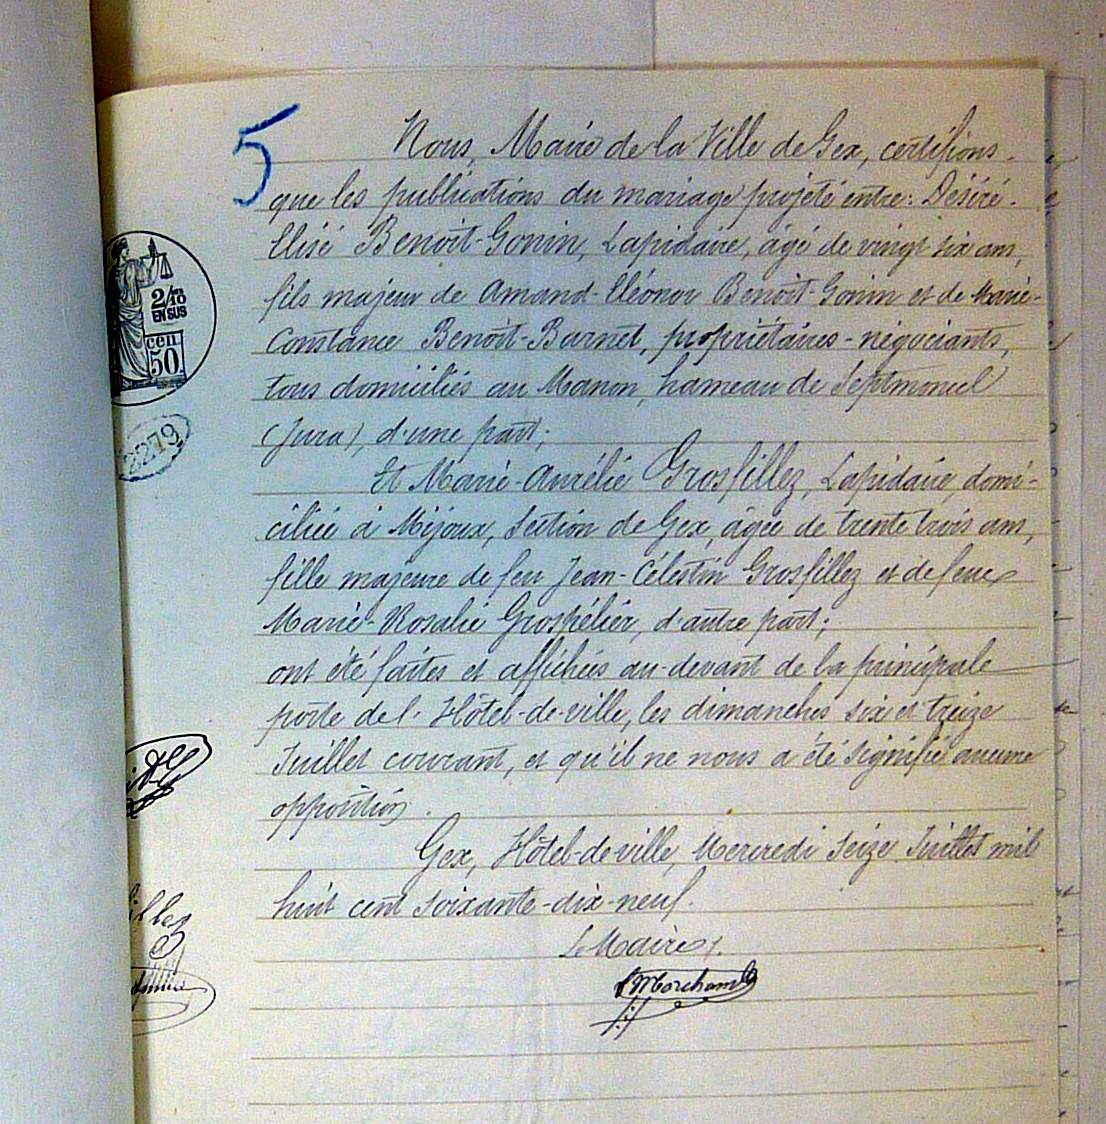 5
Nous, Maire de la Ville de Gex, certifions
que les publications du mariage projeté entre: Désiré-
Elisé Benoit-Gonin, Lapidaire, âgé de vingt six ans,
fils majeur de Amand-Eléonor Benoit-Gonin et de Marie-
Constance Benoit-Barnet, propriétaires-négociants,
tous domiciliés au Manon, hameau de Septmoncel
(Jura), d'une part;
Et Marie-Aurélie Grosfillez, Lapidaire, domi-
ciliée à Mijoux, Section de Gex, âgée de trente trois ans,
fille majeure de feu Jean-Célestin Grosfillez et de feue
Marie-Rosalie Grospélier, d'autre part;
ont été faites et affichées au-devant de la principale
porte de l'Hôtel-de-ville, les dimanches six et treize
Juillet courant, et qu'il ne nous a été signifié aucune
opposition.
Gex, Hôtel-de ville, Mercredi Seize Juillet mil
huit cent soixante-dix-neuf.
Le Maire,
2/10
EN SUS
cen
50
2279